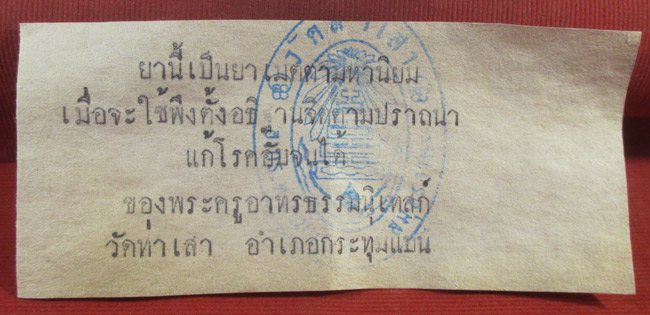 วัดท่าเสา
ยานี้เป็นยาเมตตามหานิยม
เมื่อจะใช้พึงตั้งอธิ านจิตตามปราถนา
แก้โรคอื่นจนได้
ของพระครูอาทรธรรมนิเทสก์
วัดท่าเสา อำเภอกระทุ่มแบน